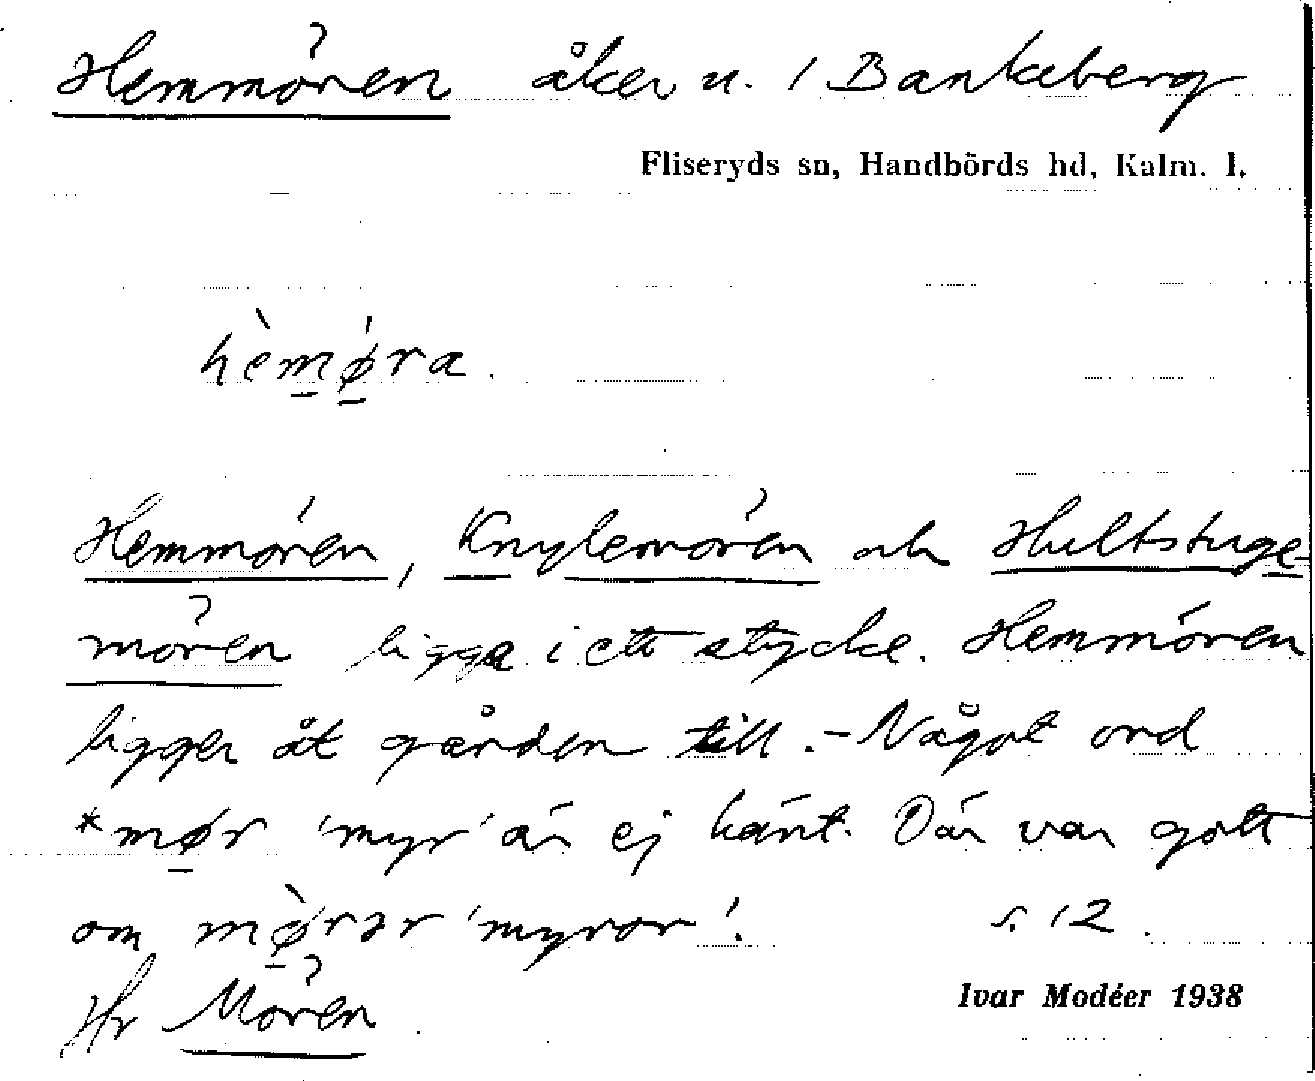 Hemmören åker u. 1 Bankeberg
Fliseryds sn, Handbörds hd, Kalm. l.
hèmø̱ra.
Hemmören, Knylemören och Hultstuge-
mören ligga i ett stycke. Hemmören
ligger åt gården till. – Något ord
*mø̱r 'myr' är ej känt. Där var gott
om mø̱̀rər 'myror'. s. 12.
Hr Mören
Ivar Modéer 1938